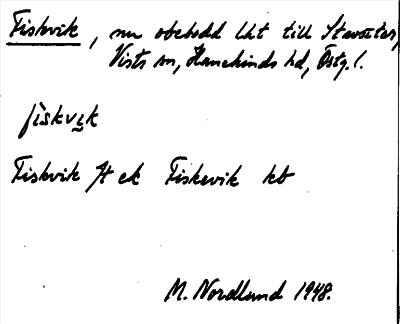 Fiskvik, nu obebodd lht till Stavsätter,
Vists sn, Hanekinds hd, Östg. l.
fìskvik
Fiskvik Jt ek Fiskevik kb
M. Nordlund 1948.